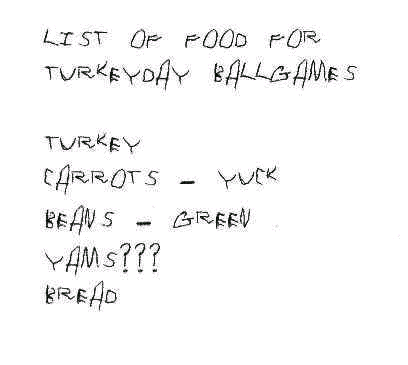 LIST OF FOOD FOR
TURKEYDAY BALLGAMES
TURKEY
CARROTS - YUCK
BEANS - GREEN
YAMS???
BREAD